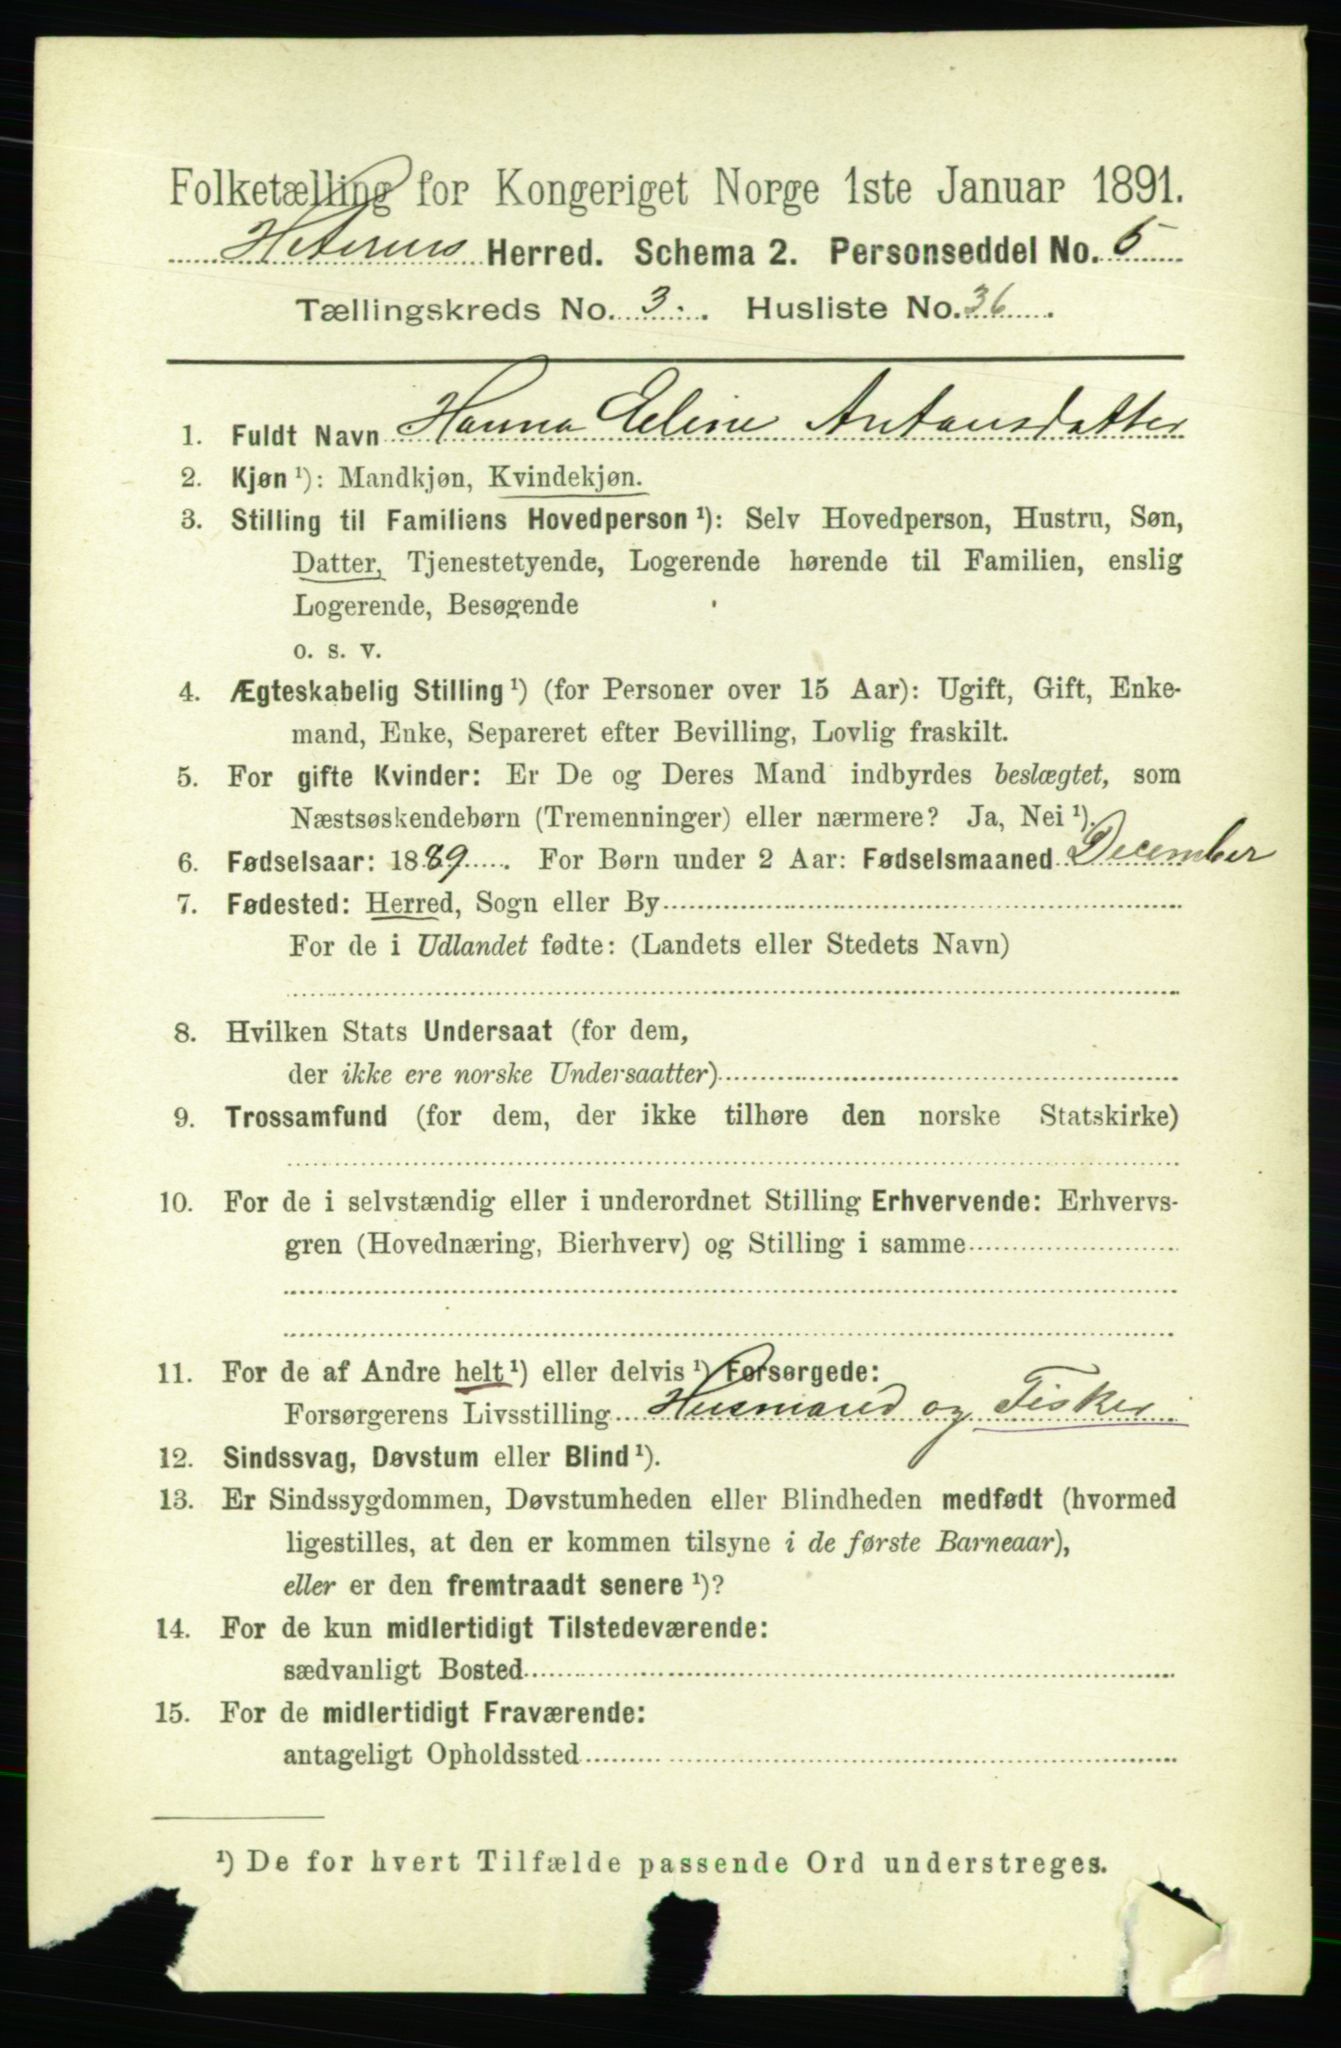 Folketælling for Kongeriget Norge 1ste Januar 1891.
Hiterens Herred. Schema 2. Personseddel No. 5
Tællingskreds No. 3. Husliste No. 36
1. Fuldt Navn Hanna Eline Antonsdatter
2. Kjøn ¹): Mandkjøn, Kvindekjøn.
3. Stilling til Familiens Hovedperson ¹): Selv Hovedperson, Hustru, Søn,
Datter, Tjenestetyende, Logerende hørende til Familien, enslig
Logerende, Besøgende
o. s. v.
4. Ægteskabelig Stilling ¹) (for Personer over 15 Aar): Ugift, Gift, Enke-
mand, Enke, Separeret efter Bevilling, Lovlig fraskilt.
5. For gifte Kvinder: Er De og Deres Mand indbyrdes beslægtet, som
Næstsøskendebørn (Tremenninger) eller nærmere? Ja, Nei ¹).
6. Fødselsaar: 1889. For Børn under 2 Aar: Fødselsmaaned December
7. Fødested: Herred, Sogn eller By
For de i Udlandet fødte: (Landets eller Stedets Navn)
8. Hvilken Stats Undersaat (for dem,
der ikke ere norske Undersaatter)
9. Trossamfund (for dem, der ikke tilhøre den norske Statskirke)
10. For de i selvstændig eller i underordnet Stilling Erhvervende: Erhvervs-
gren (Hovednæring, Bierhverv) og Stilling i samme
11. For de af Andre helt ¹) eller delvis ¹) Forsørgede:
Forsørgerens Livsstilling Husmand og Fisker
12. Sindssvag, Døvstum eller Blind ¹).
13. Er Sindssygdommen, Døvstumheden eller Blindheden medfødt (hvormed
ligestilles, at den er kommen tilsyne i de første Barneaar),
eller er den fremtraadt senere ¹)?
14. For de kun midlertidigt Tilstedeværende:
sædvanligt Bosted
15. For de midlertidigt Fraværende:
antageligt Opholdssted
¹) De for hvert Tilfælde passende Ord understreges.